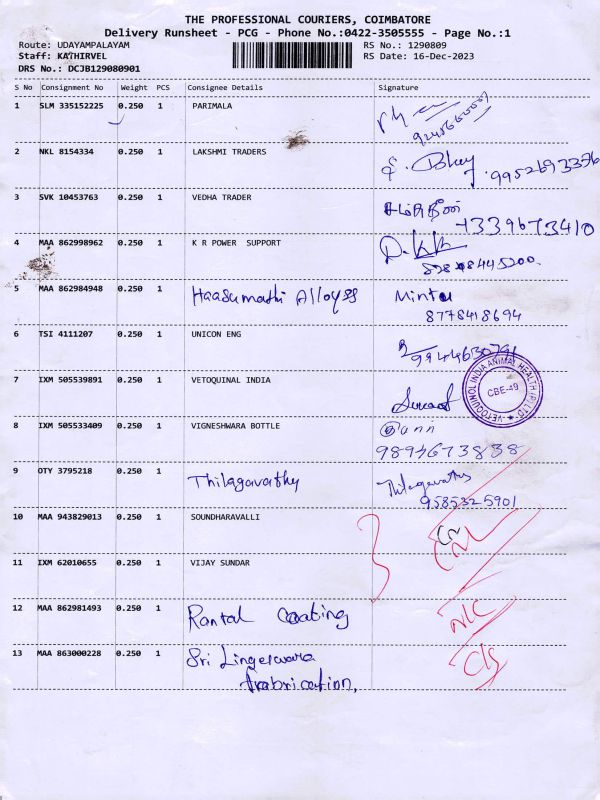 THE PROFESSIONAL COURIERS, COIMBATORE
Delivery Runsheet - PCG - Phone No.:0422-3505555 - Page No.:1
Route: UDAYAMPALAYAM
Staff: KATHIRVEL
DRS No.: DCJB129080901
RS No.: 1290809
RS Date: 16-Dec-2023
S No Consignment No Weight PCS Consignee Details Signature
1 SLM 335152225 0.250 1 PARIMALA
2 NKL 8154334 0.250 1 LAKSHMI TRADERS 9952693356
3 SVK 10453763 0.250 1 VEDHA TRADER
7339673410
4 MAA 862998962 0.250 1 K R POWER SUPPORT
5 MAA 862984948 0.250 1 Haasumathi Alloyes Mintu
8778418694
6 TSI 4111207 0.250 1 UNICON ENG
7 IXM 505539891 0.250 1 VETOQUINAL INDIA
VETOQUINOL INDIA ANIMAL HEALTH (P) LTD
CBE-49
8 IXM 505533409 0.250 1 VIGNESHWARA BOTTLE
9894673838
9 OTY 3795218 0.250 1 Thilagavathy Thilagavathy
9585325901
10 MAA 943829013 0.250 1 SOUNDHARAVALLI
11 IXM 62010655 0.250 1 VIJAY SUNDAR
12 MAA 862981493 0.250 1 Rantal Coating
13 MAA 863000228 0.250 1 Sri Lingeswara
frabrication.